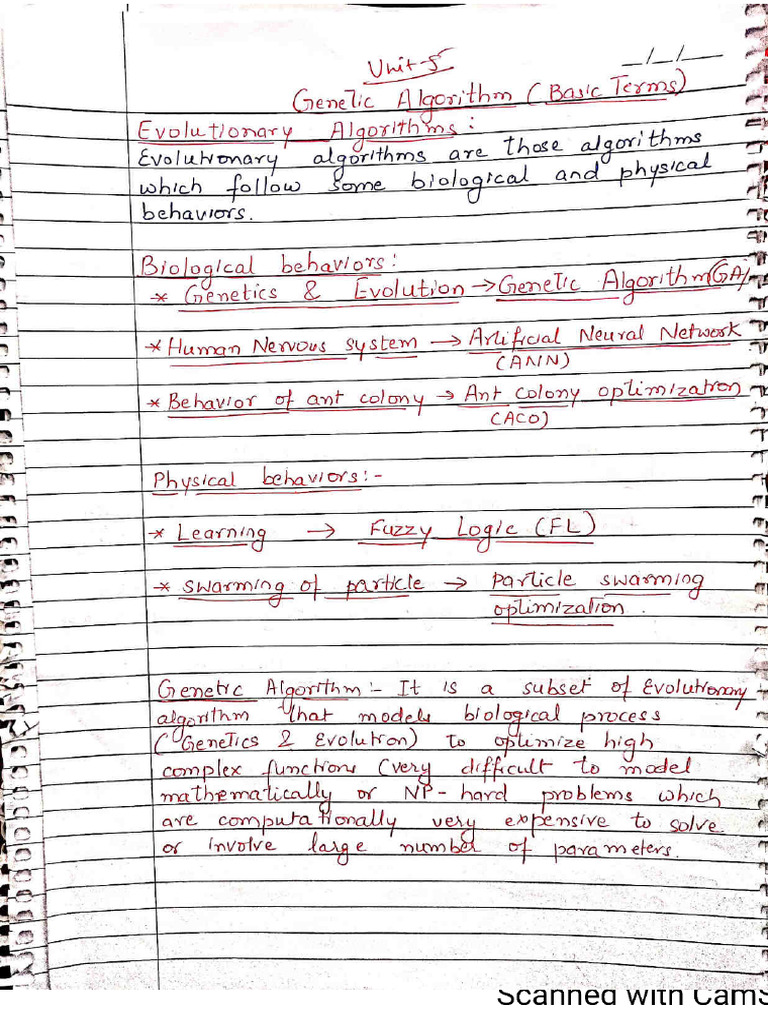 Unit-5
_/_/__
Genetic Algorithm (Basic Terms)
Evolutionary Algorithms:
Evolutionary algorithms are those algorithms
which follow some biological and physical
behaviors.
Biological behaviors:
* Genetics & Evolution → Genetic Algorithm(GA)
* Human Nervous system → Artificial Neural Network
(ANN)
* Behavior of ant colony → Ant colony optimization
(ACO)
Physical behaviors:-
* Learning → Fuzzy Logic (FL)
* Swarming of particle → Particle swarming
optimization.
Genetic Algorithm:- It is a subset of Evolutionary
algorithm that models biological process
(Genetics & Evolution) to optimize high
complex functions (very difficult to model
mathematically or NP-hard problems which
are computationally very expensive to solve
or involve large number of parameters.
Scanned with CamS